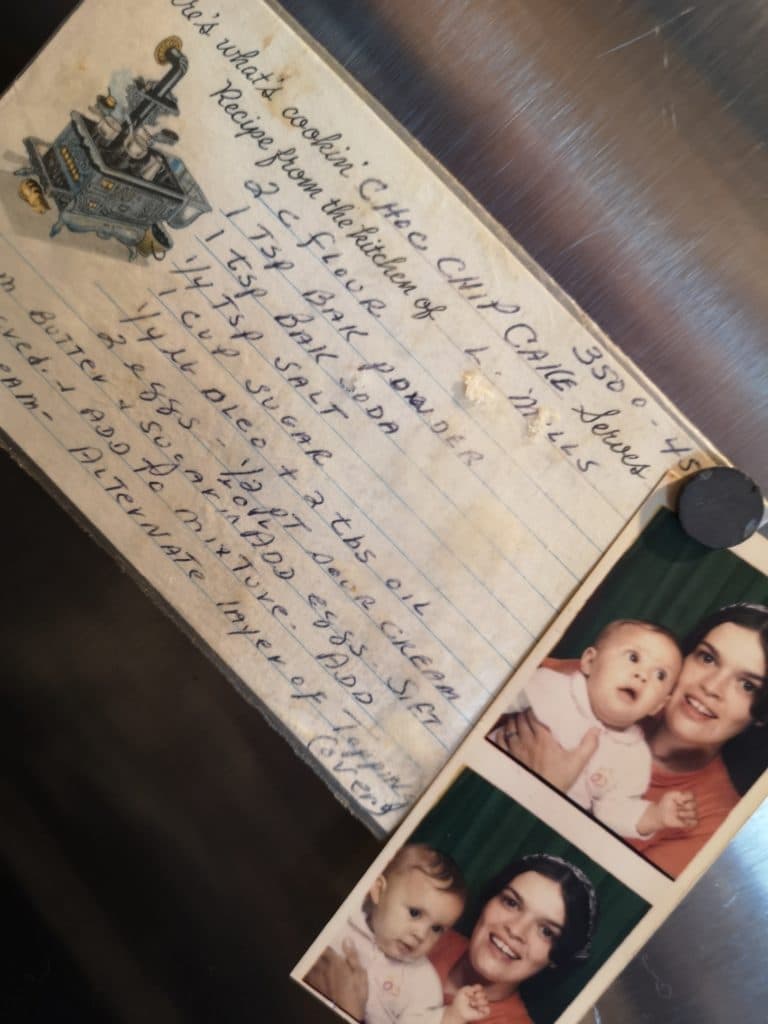 what's cookin' CHOC CHIP CAKE Serves
350° - 45
Recipe from the kitchen of L. MILLS
2 C FLOUR
1 TSP BAK POWDER
1 tsp BAK SODA
1/4 TSP SALT
1 CUP SUGAR
1/4 lb OLEO + 2 tbs OIL
2 eggs - 1/2 PT SOUR CREAM
BUTTER + SUGAR ADD eggs. SIFT
+ ADD to MIXTURE. ADD
ALTERNATE layer of Topping
(over)